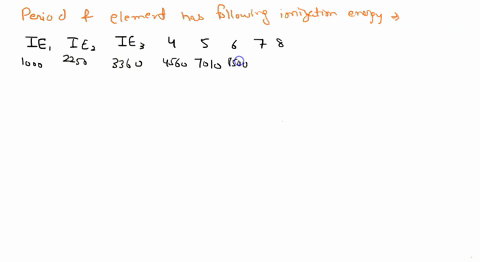 Period of element has following ionization energy →
IE1 IE2 IE3 4 5 6 7 8
1000 2250 3360 4560 7010 8500